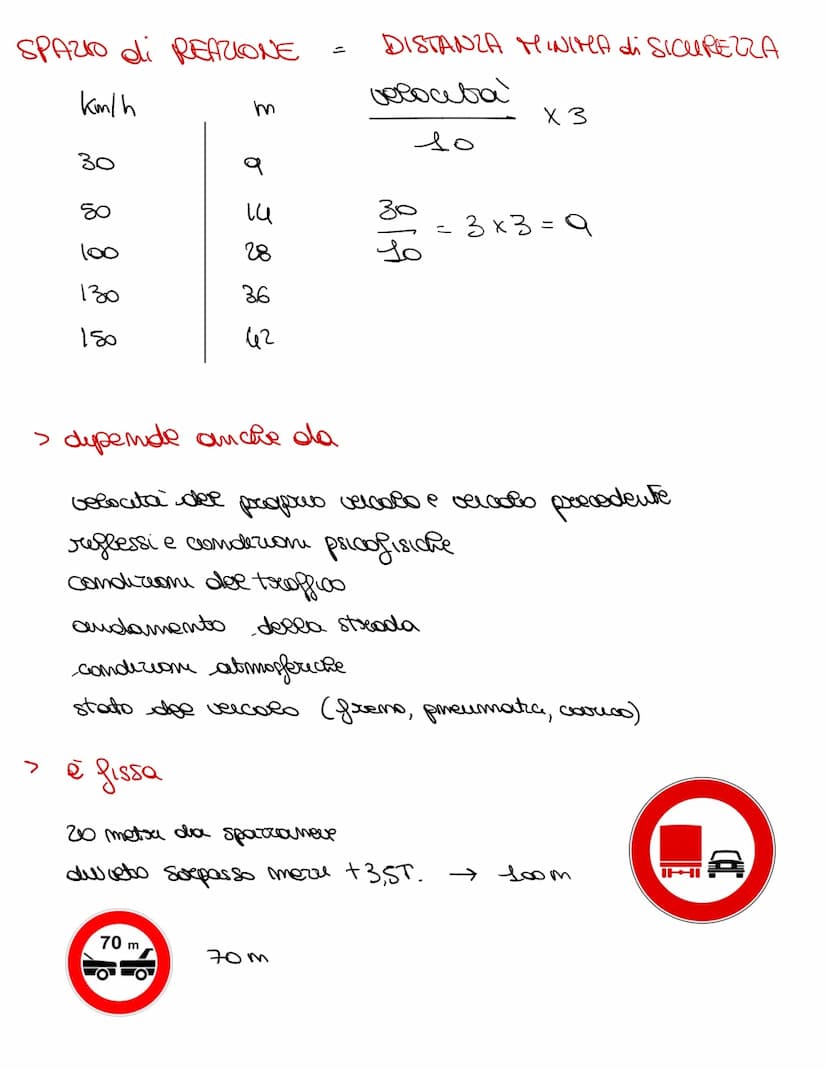 SPAZIO di REAZIONE = DISTANZA MINIMA di SICUREZZA
Km/h m
30 9
50 14
100 28
130 36
150 42
velocità
10
x 3
30
10
= 3 x 3 = 9
> dipende anche da
velocità del proprio veicolo e veicolo precedente
riflessi e condizioni psicofisiche
condizioni del traffico
andamento della strada
condizioni atmosferiche
stato del veicolo (freno, pneumatici, carico)
> è fissa
20 metri da spazzaneve
divieto sorpasso merci +3,5T. → 100m
70 m
70m